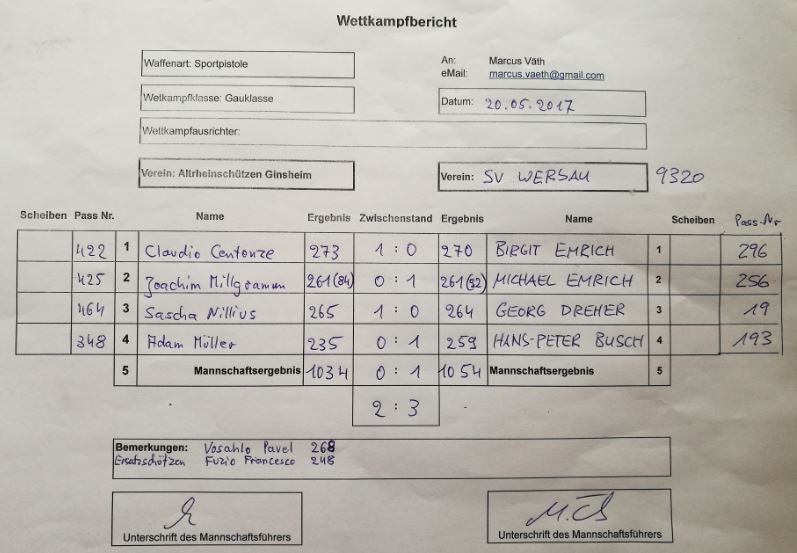 Wettkampfbericht
Waffenart: Sportpistole
An: Marcus Väth
eMail: marcus.vaeth@gmail.com
Wetkampfklasse: Gauklasse
Datum: 20.05.2017
Wettkampfausrichter:
Verein: Altrheinschützen Ginsheim
Verein: SV WERSAU 9320
Scheiben Pass Nr. Name Ergebnis Zwischenstand Ergebnis Name Scheiben Pass-Nr
422 1 Claudio Centonze 273 1 : 0 270 BIRGIT EMRICH 1 296
425 2 Joachim Millgramm 261(84) 0 : 1 261(92) MICHAEL EMRICH 2 256
464 3 Sascha Nillius 265 1 : 0 264 GEORG DREHER 3 19
348 4 Adam Müller 235 0 : 1 259 HANS-PETER BUSCH 4 193
5 Mannschaftsergebnis 1034 0 : 1 1054 Mannschaftsergebnis 5
2 : 3
Bemerkungen: Vosahlo Pavel 268
Ersatzschützen Fuzio Francesco 248
Unterschrift des Mannschaftsführers
Unterschrift des Mannschaftsführers